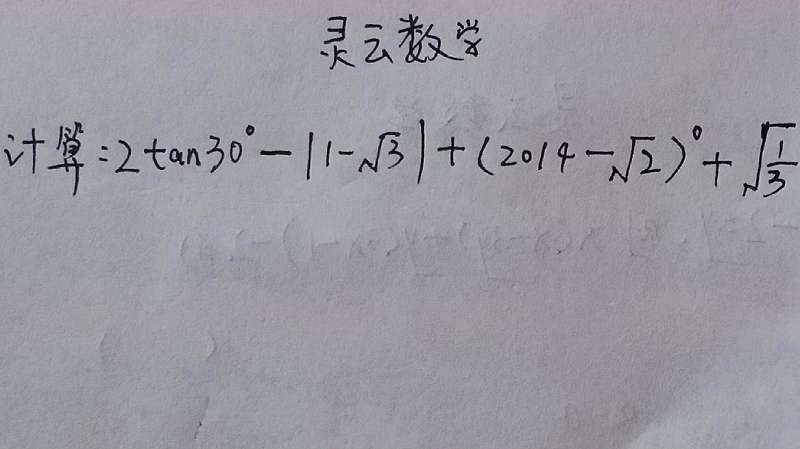 灵云数学
计算:2tan30°-|1-√3|+(2014-√2)⁰+√(1/3)